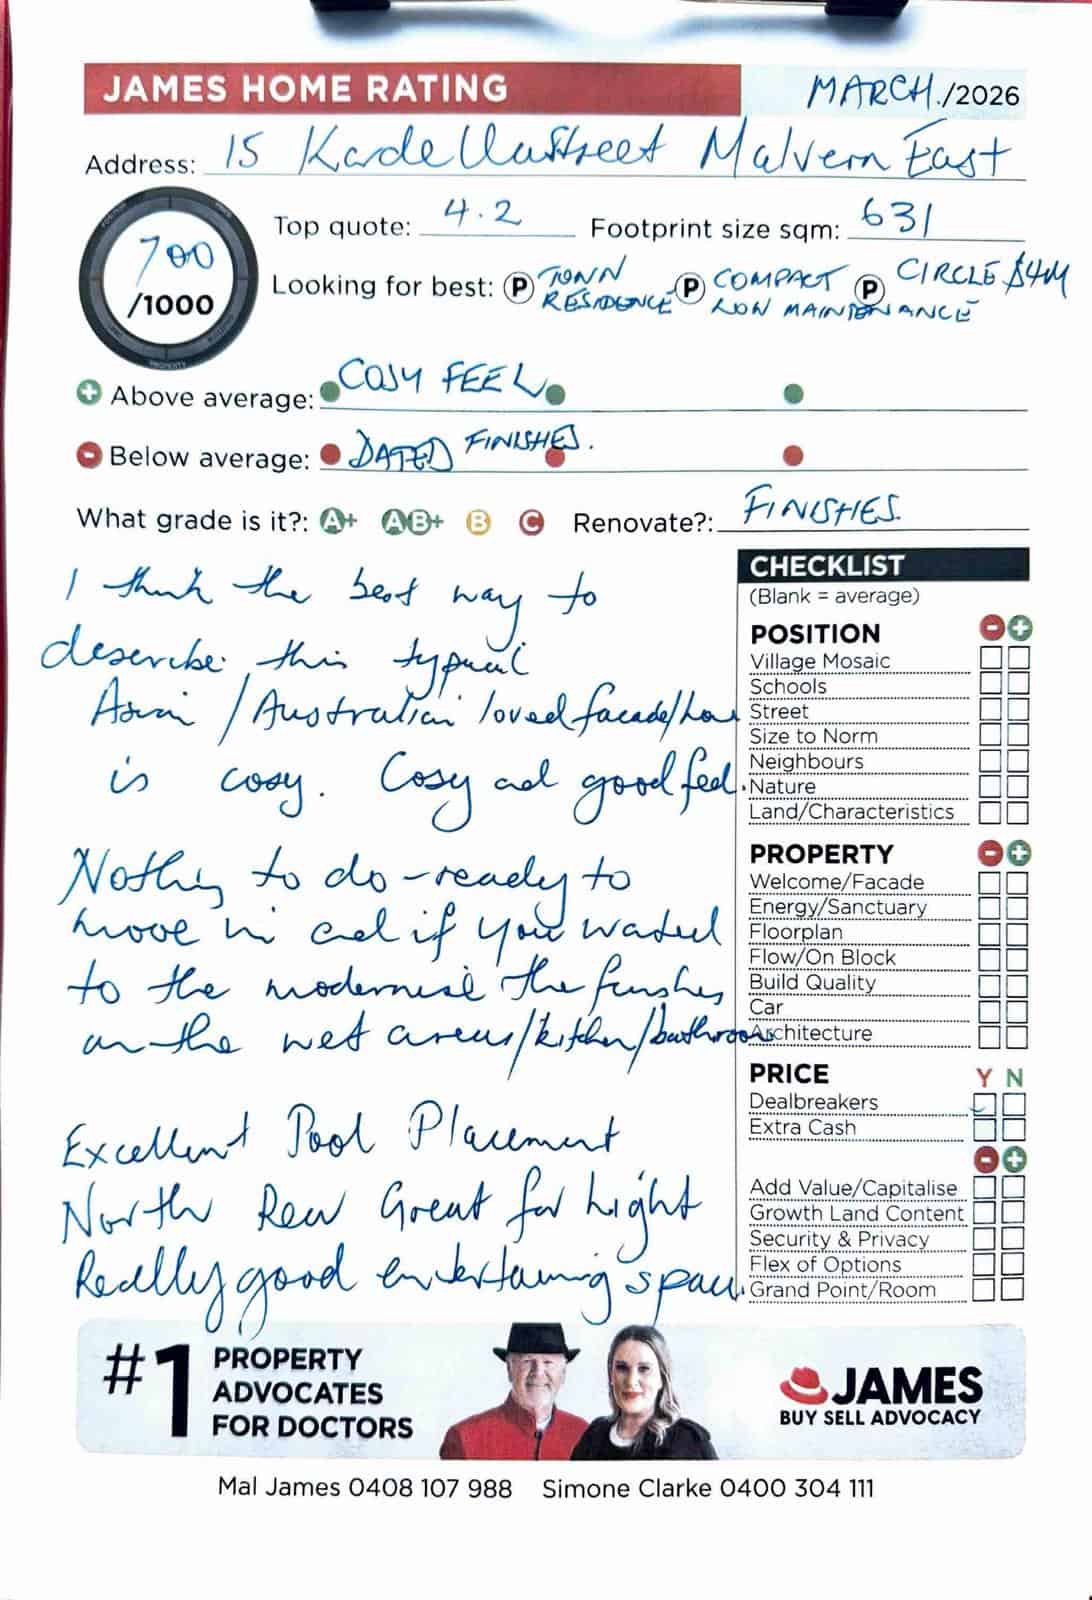 JAMES HOME RATING
MARCH./2026
Address: 15 Kardella Street Malvern East
700
/1000
Top quote: 4.2 Footprint size sqm: 631
Looking for best: P TOWN RESIDENCE P COMPACT LOW MAINTENANCE P CIRCLE $4M
+ Above average: COSY FEEL
- Below average: DATED FINISHES.
What grade is it?: A+ AB+ B C Renovate?: FINISHES.
I think the best way to
describe this typical
Asian / Australian loved facade/
is cosy. Cosy and good feel.
Nothing to do - ready to
move in and if you wanted
to the modernise the finishes
on the wet areas/kitchen/bathrooms
Excellent Pool Placement
North Rear Great for Light
Really good entertaining space.
CHECKLIST
(Blank = average)
POSITION - +
Village Mosaic
Schools
Street
Size to Norm
Neighbours
Nature
Land/Characteristics
PROPERTY - +
Welcome/Facade
Energy/Sanctuary
Floorplan
Flow/On Block
Build Quality
Car
Architecture
PRICE Y N
Dealbreakers
Extra Cash
- +
Add Value/Capitalise
Growth Land Content
Security & Privacy
Flex of Options
Grand Point/Room
#1 PROPERTY
ADVOCATES
FOR DOCTORS
JAMES
BUY SELL ADVOCACY
Mal James 0408 107 988 Simone Clarke 0400 304 111